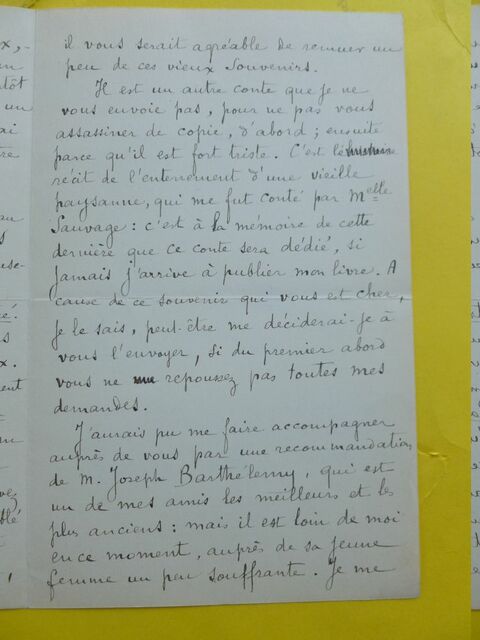 il vous serait agréable de remuer un
peu de ces vieux souvenirs.
Il est un autre conte que je ne
vous envoie pas, pour ne pas vous
assassiner de copie, d'abord ; ensuite
parce qu'il est fort triste. C'est le
récit de l'enterrement d'une vieille
paysanne, qui me fut conté par Melle
Sauvage : c'est à la mémoire de cette
dernière que ce conte sera dédié, si
jamais j'arrive à publier mon livre. A
cause de ce souvenir qui vous est cher,
je le sais, peut-être me déciderai-je à
vous l'envoyer, si du premier abord
vous ne repoussez pas toutes mes
demandes.
J'aurais pu me faire accompagner
auprès de vous par une recommandation
de M. Joseph Barthélemy, qui est
un de mes amis les meilleurs et les
plus anciens : mais il est loin de moi
en ce moment, auprès de sa jeune
femme un peu souffrante. Je me